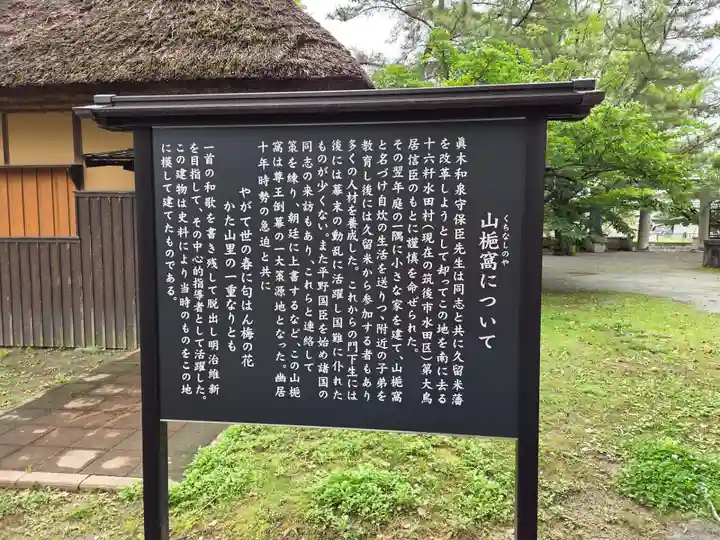 くちなしのや
山梔窩について
眞木和泉守保臣先生は同志と共に久留米藩
を改革しようとして却ってこの地を南に去る
十六粁水田村（現在の筑後市水田区）第大鳥
居信臣のもとに謹慎を命ぜられた。
その翌年庭の一隅に小さな家を建て、山梔窩
と名づけ自炊の生活を送りつ、附近の子弟を
教育し後には久留米から参加する者もあり
多くの人材を養成した。これからの門下生には
後には幕末の動乱に活躍し国難に仆れた
ものが少くない。また平野国臣を始め諸国の
同志の来訪もあり、これらと連絡して
策を練り、朝廷に上書するなど、この山梔
窩は尊王倒幕の一大策源地となった。幽居
十年時勢の急迫と共に
やがて世の春に匂はん梅の花
かた山里の一重なりとも
一首の和歌を書き残して脱出し明治維新
を目指して、その中心的指導者として活躍した。
この建物は史料により当時のものをこの地
に模して建てたものである。